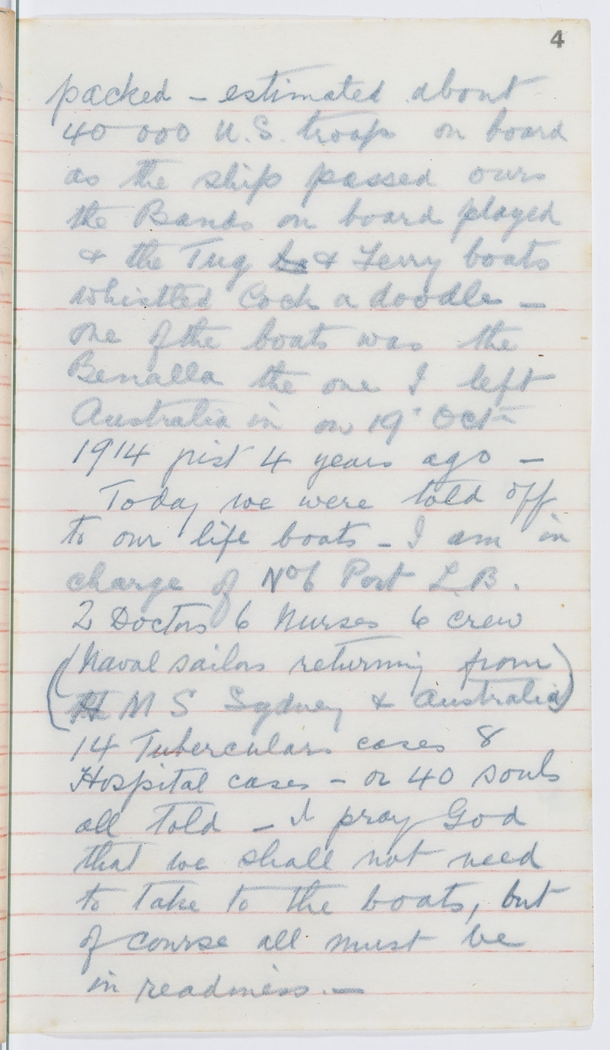 4
packed - estimated about
40 000 U.S. troops on board
as the ship passed ours
the Bands on board played
& the Tug & Ferry boats
whistled Cock a doodle -
one of the boats was the
Benalla the one I left
Australia in on 19th Oct
1914 just 4 years ago -
Today we were told off
to our life boats - I am in
charge of No 6 Port L.B.
2 Doctors 6 Nurses 6 crew
(Naval sailors returning from
H M S Sydney & Australia)
14 Tubercular cases 8
Hospital cases - or 40 souls
all told - I pray God
that we shall not need
to take to the boats, but
of course all must be
in readiness. -